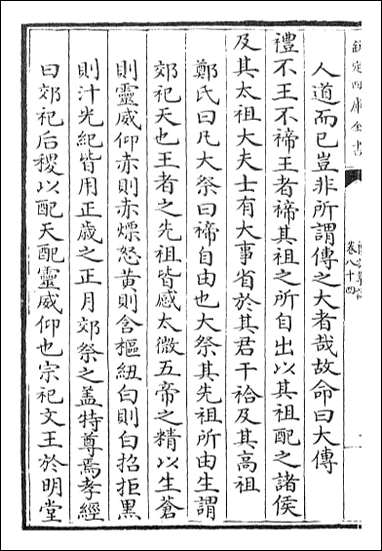 欽定四庫全書
卷八十四
人道而已豈非所謂傳之大者哉故命曰大傳
禮不王不禘王者禘其祖之所自出以其祖配之諸侯
及其太祖大夫士有大事省於其君干祫及其高祖
鄭氏曰凡大祭曰禘自由也大祭其先祖所由生謂
郊祀天也王者之先祖皆感太微五帝之精以生蒼
則靈威仰赤則赤熛怒黄則含樞紐白則白招拒黒
則汁光紀皆用正歲之正月郊祭之盖特尊焉孝經
曰郊祀后稷以配天配靈威仰也宗祀文王於明堂